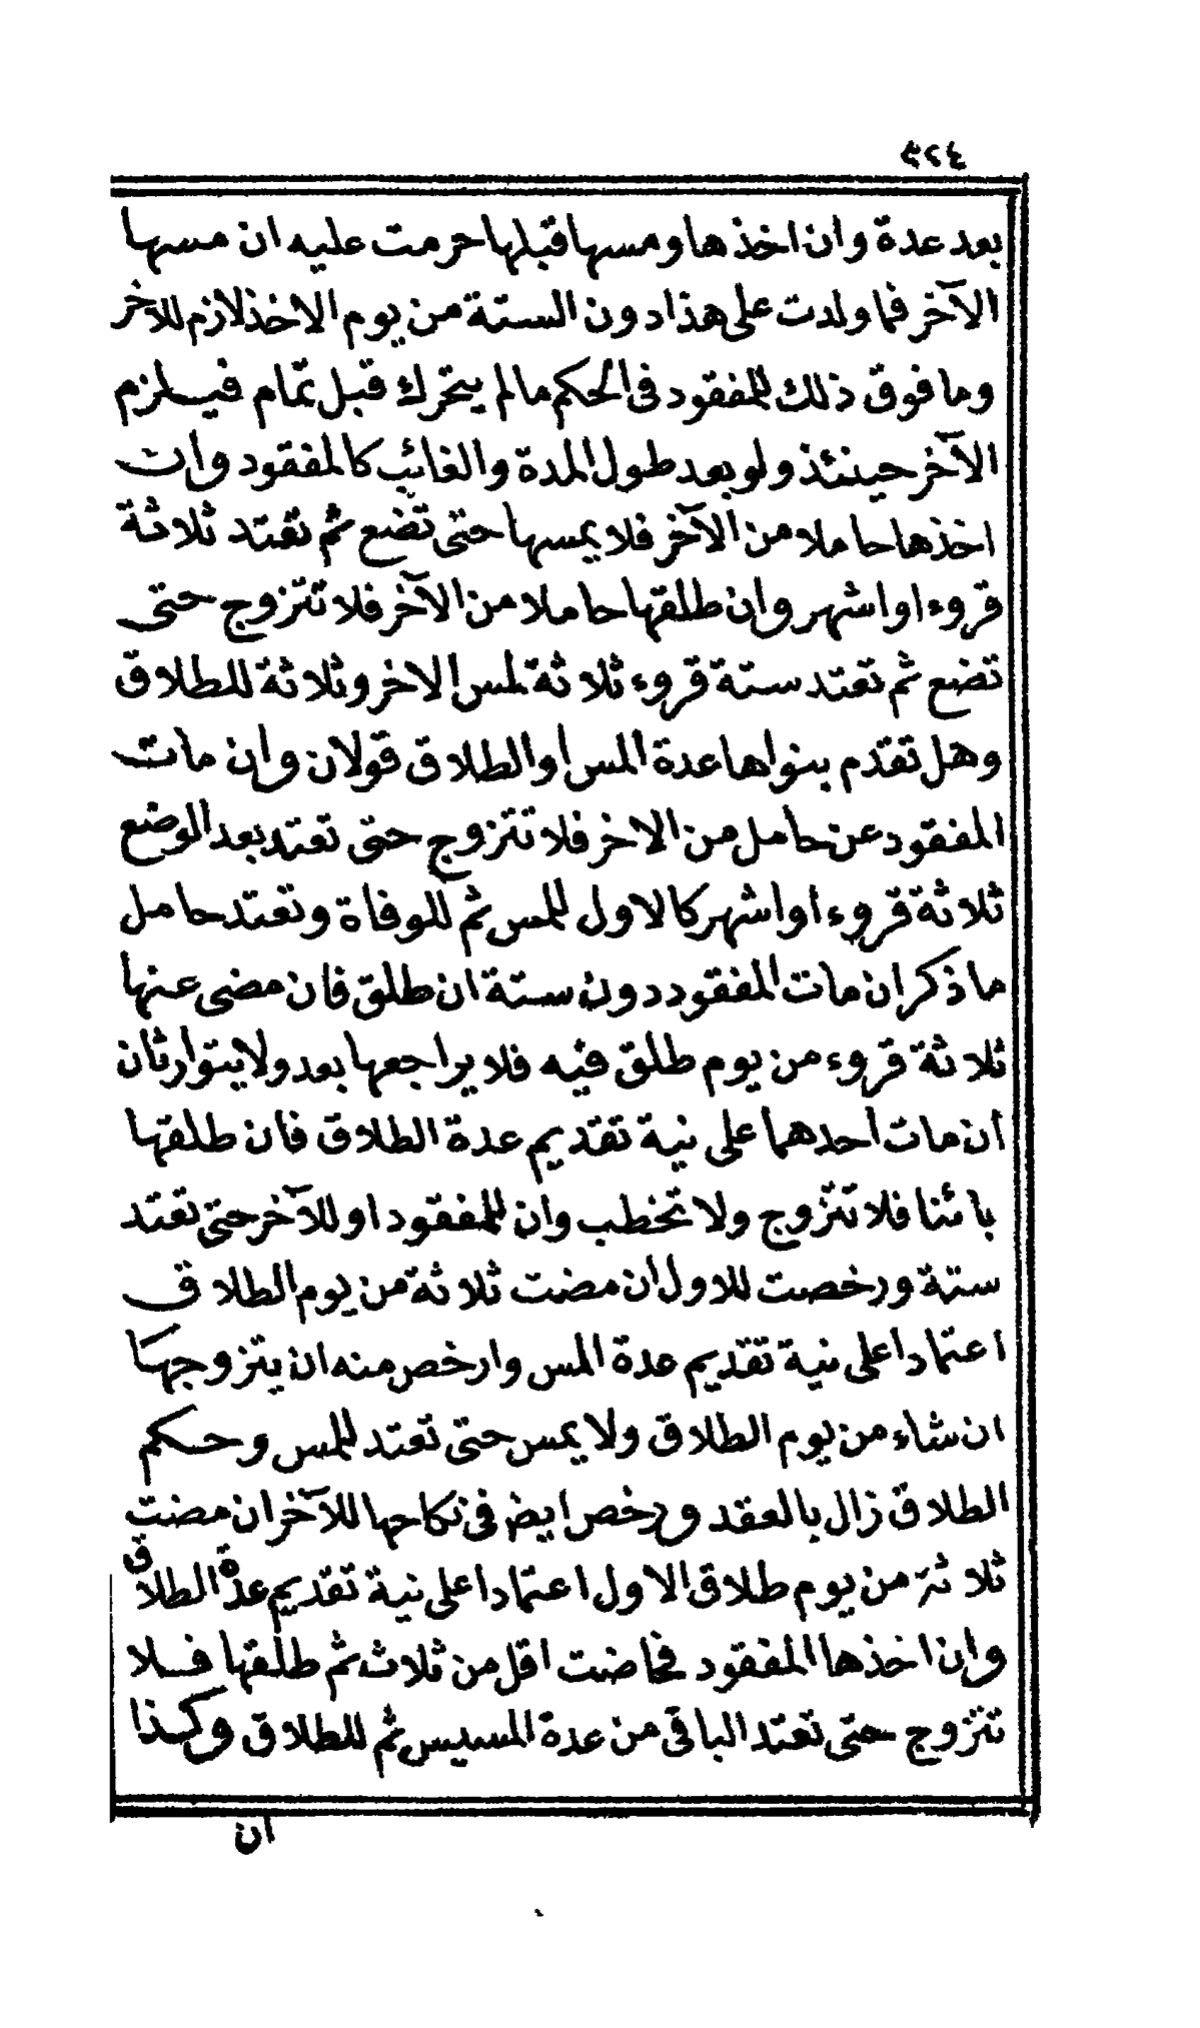 ٣٢٤
بعد عدة وان اخذها ومسها قبلها حرمت عليه ان مسها
الآخر فما ولدت على هذا دون الستة من يوم الاخذ لازم للآخر
وما فوق ذلك للمفقود فى الحكم ما لم يتحرك قبل تمام فيلزم
الآخر حينئذ ولو بعد طول المدة والغائب كالمفقود وان
اخذها حاملا من الآخر فلا يمسها حتى تضع ثم تعتد ثلاثة
قروء او اشهر وان طلقها حاملا من الآخر فلا تتزوج حتى
تضع ثم تعتد ستة قروء ثلاثة لمس الاخر وثلاثة للطلاق
وهل تقدم بنواها عدة المس او الطلاق قولان وان مات
المفقود عن حامل من الاخر فلا تتزوج حتى تعتد بعد الوضع
ثلاثة قروء او اشهر كالاول للمس ثم للوفاة وتعتد حامل
ما ذكر ان مات المفقود دون ستة ان طلق فان مضى عنها
ثلاثة قروء من يوم طلق فيه فلا يراجعها بعد ولا يتوارثان
ان مات احدهما على نية تقديم عدة الطلاق فان طلقها
بائنا فلا تتزوج ولا تخطب وان للمفقود او للآخر حتى تعتد
ستة ورخصت للاول ان مضت ثلاثة من يوم الطلاق
اعتمادا على نية تقديم عدة المس وارخص منه ان يتزوجها
ان شاء من يوم الطلاق ولا يمس حتى تعتد للمس وحكم
الطلاق زال بالعقد ورخص ايض فى نكاحها للآخر ان مضت
ثلاثة من يوم طلاق الاول اعتمادا على نية تقديم عدة الطلاق
وان اخذها المفقود فحاضت اقل من ثلاث ثم طلقها فلا
تتزوج حتى تعتد الباقى من عدة المسيس ثم للطلاق وكذا
ان